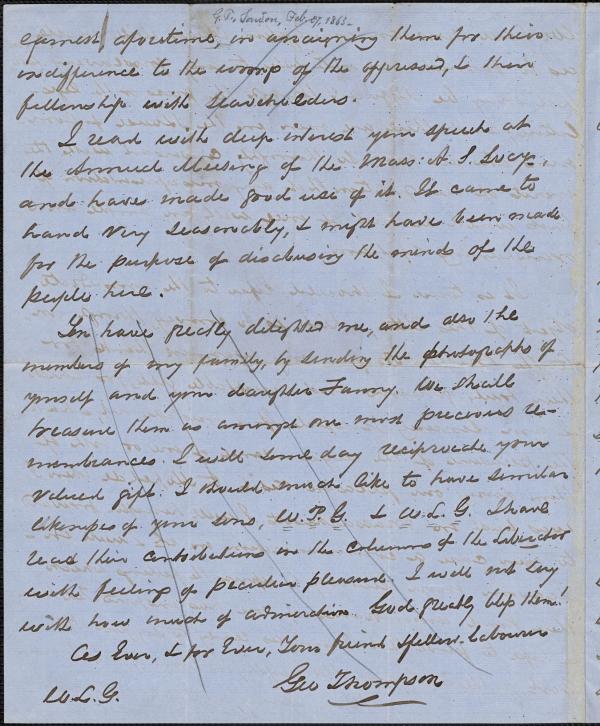 G. T., London, Feb. 27, 1863.
earnest, aforetime, in arraigning them for their
indifference to the wrongs of the oppressed, & their
fellowship with slaveholders.
I read with deep interest your speech at
the Annual Meeting of the Mass: A. S. Socy.,
and have made good use of it. It came to
hand very seasonably, & might have been made
for the purpose of disabusing the minds of the
people here.
You have greatly delighted me, and also the
members of my family, by sending the photographs of
yourself and your daughter Fanny. We shall
treasure them as amongst our most precious re-
membrances. I will some day reciprocate your
valued gift. I should much like to have similar
likenesses of your sons, W. P. G. & W. L. G. I have
read their contributions in the columns of the Liberator
with feelings of peculiar pleasure. I will not say
with how much of admiration. God greatly bless them!
As Ever, & for Ever, Your friend & fellow-labourer
Geo Thompson
W. L. G.